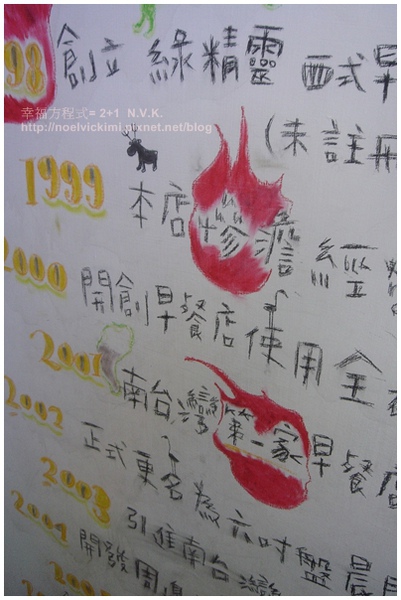 98 創立 綠精靈 西式早
(未註冊
1999 本店慘澹經營
2000 開創早餐店使用全
2001 南台灣第一家早餐店
2002 正式更名為六吋盤晨
2003 引進南台灣
2004 開發周
幸福方程式= 2+1 N.V.K.
http://noelvickimi.pixnet.net/blog